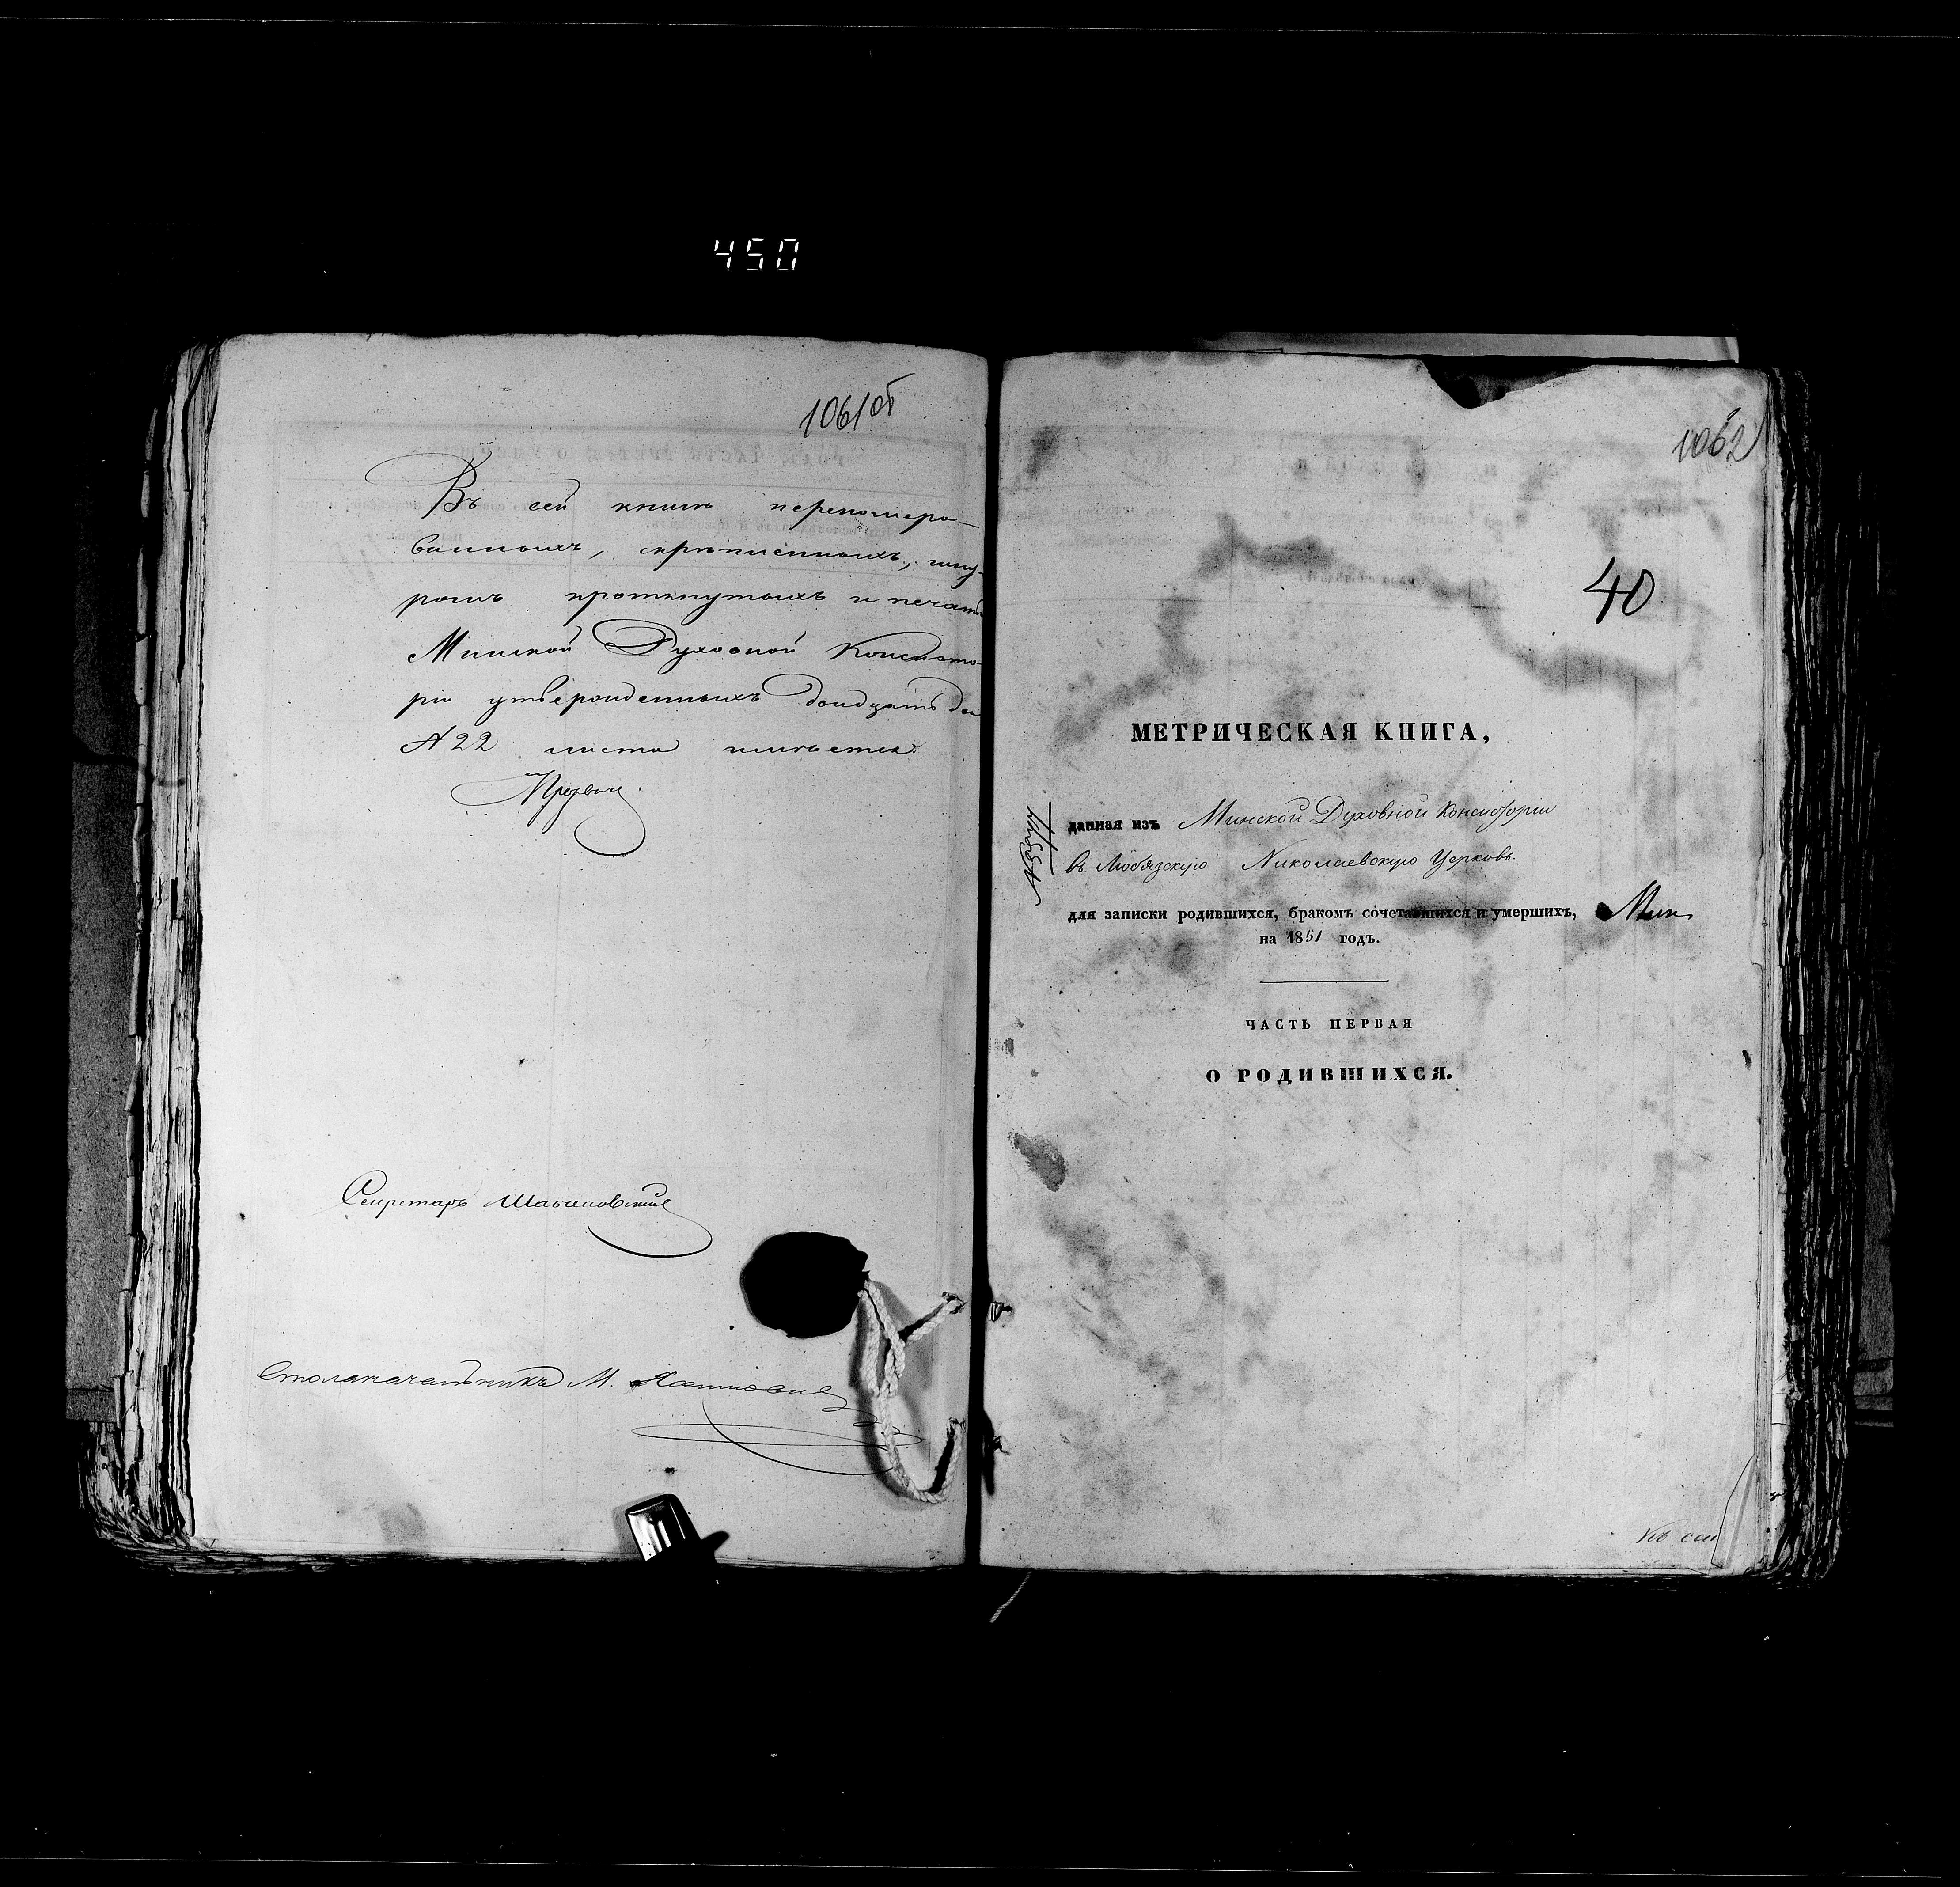 450
1061об
Въ сей книгѣ перенумеро-
ванныхъ, скрѣпленныхъ, шну-
ромъ проткнутыхъ и печатью
Минской Духовной Консисто-
ріи утвержденныхъ двадцать два
№ 22 листа имѣется.
Секретарь
Столоначальникъ М.
1062
40
МЕТРИЧЕСКАЯ КНИГА,
данная изъ Минской Духовной Консисторіи
въ Любязскую Николаевскую Церковь.
для записки родившихся, бракомъ сочетавшихся и умершихъ,
на 1851 годъ.
ЧАСТЬ ПЕРВАЯ
О РОДИВШИХСЯ.